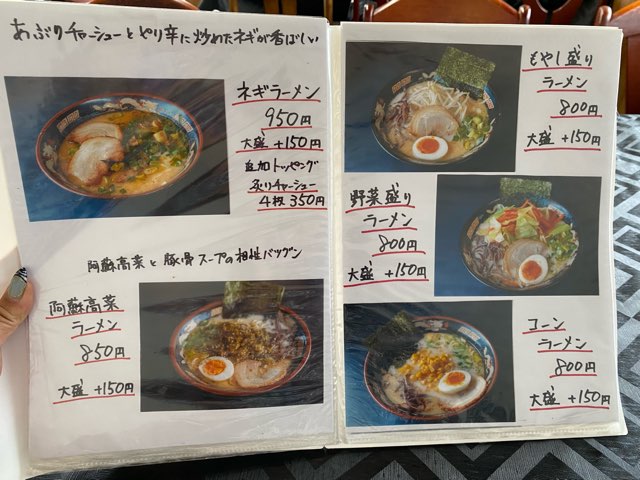 あぶりチャーシューとピリ辛に炒めたネギが香ばしい
ネギラーメン
950円
大盛 +150円
追加トッピング
炙りチャーシュー
4枚 350円
阿蘇高菜と豚骨スープの相性バツグン
阿蘇高菜
ラーメン
850円
大盛 +150円
もやし盛り
ラーメン
800円
大盛 +150円
野菜盛り
ラーメン
800円
大盛 +150円
コーン
ラーメン
800円
大盛 +150円